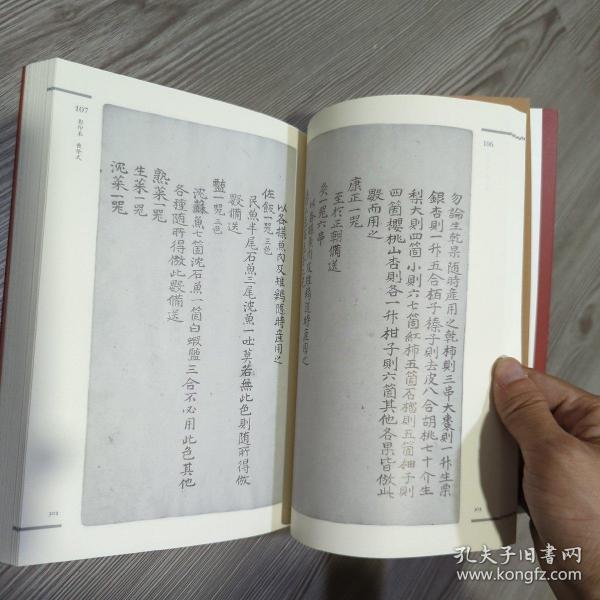 106
勿論生乾果隨時產用之乾柿則三串大棗則一升生栗
銀杏則一升五合栢子榛子則去皮八合胡桃七十介生
梨大則四箇小則六七箇紅柿五箇石榴則五箇柚子則
四箇櫻桃山杏則各一升柑子則六箇其他各果皆倣此
毆而用之
康正一咒
至於正朝備送
炙一咒六串
以各樣魚肉及雉鷄隨時產用之
佐飯一咒三色
民魚半尾石魚三尾沈魚一吐莫若無此色則隨所得倣
毆備送
醢一咒三色
沈蘇魚七箇沈石魚一箇白蝦醢三合不必用此色其他
各種隨所得倣此毆備送
熟菜一咒
生菜一咒
沈菜一咒
107
影印本
303
302
孔夫子旧书网
www.kongfz.com